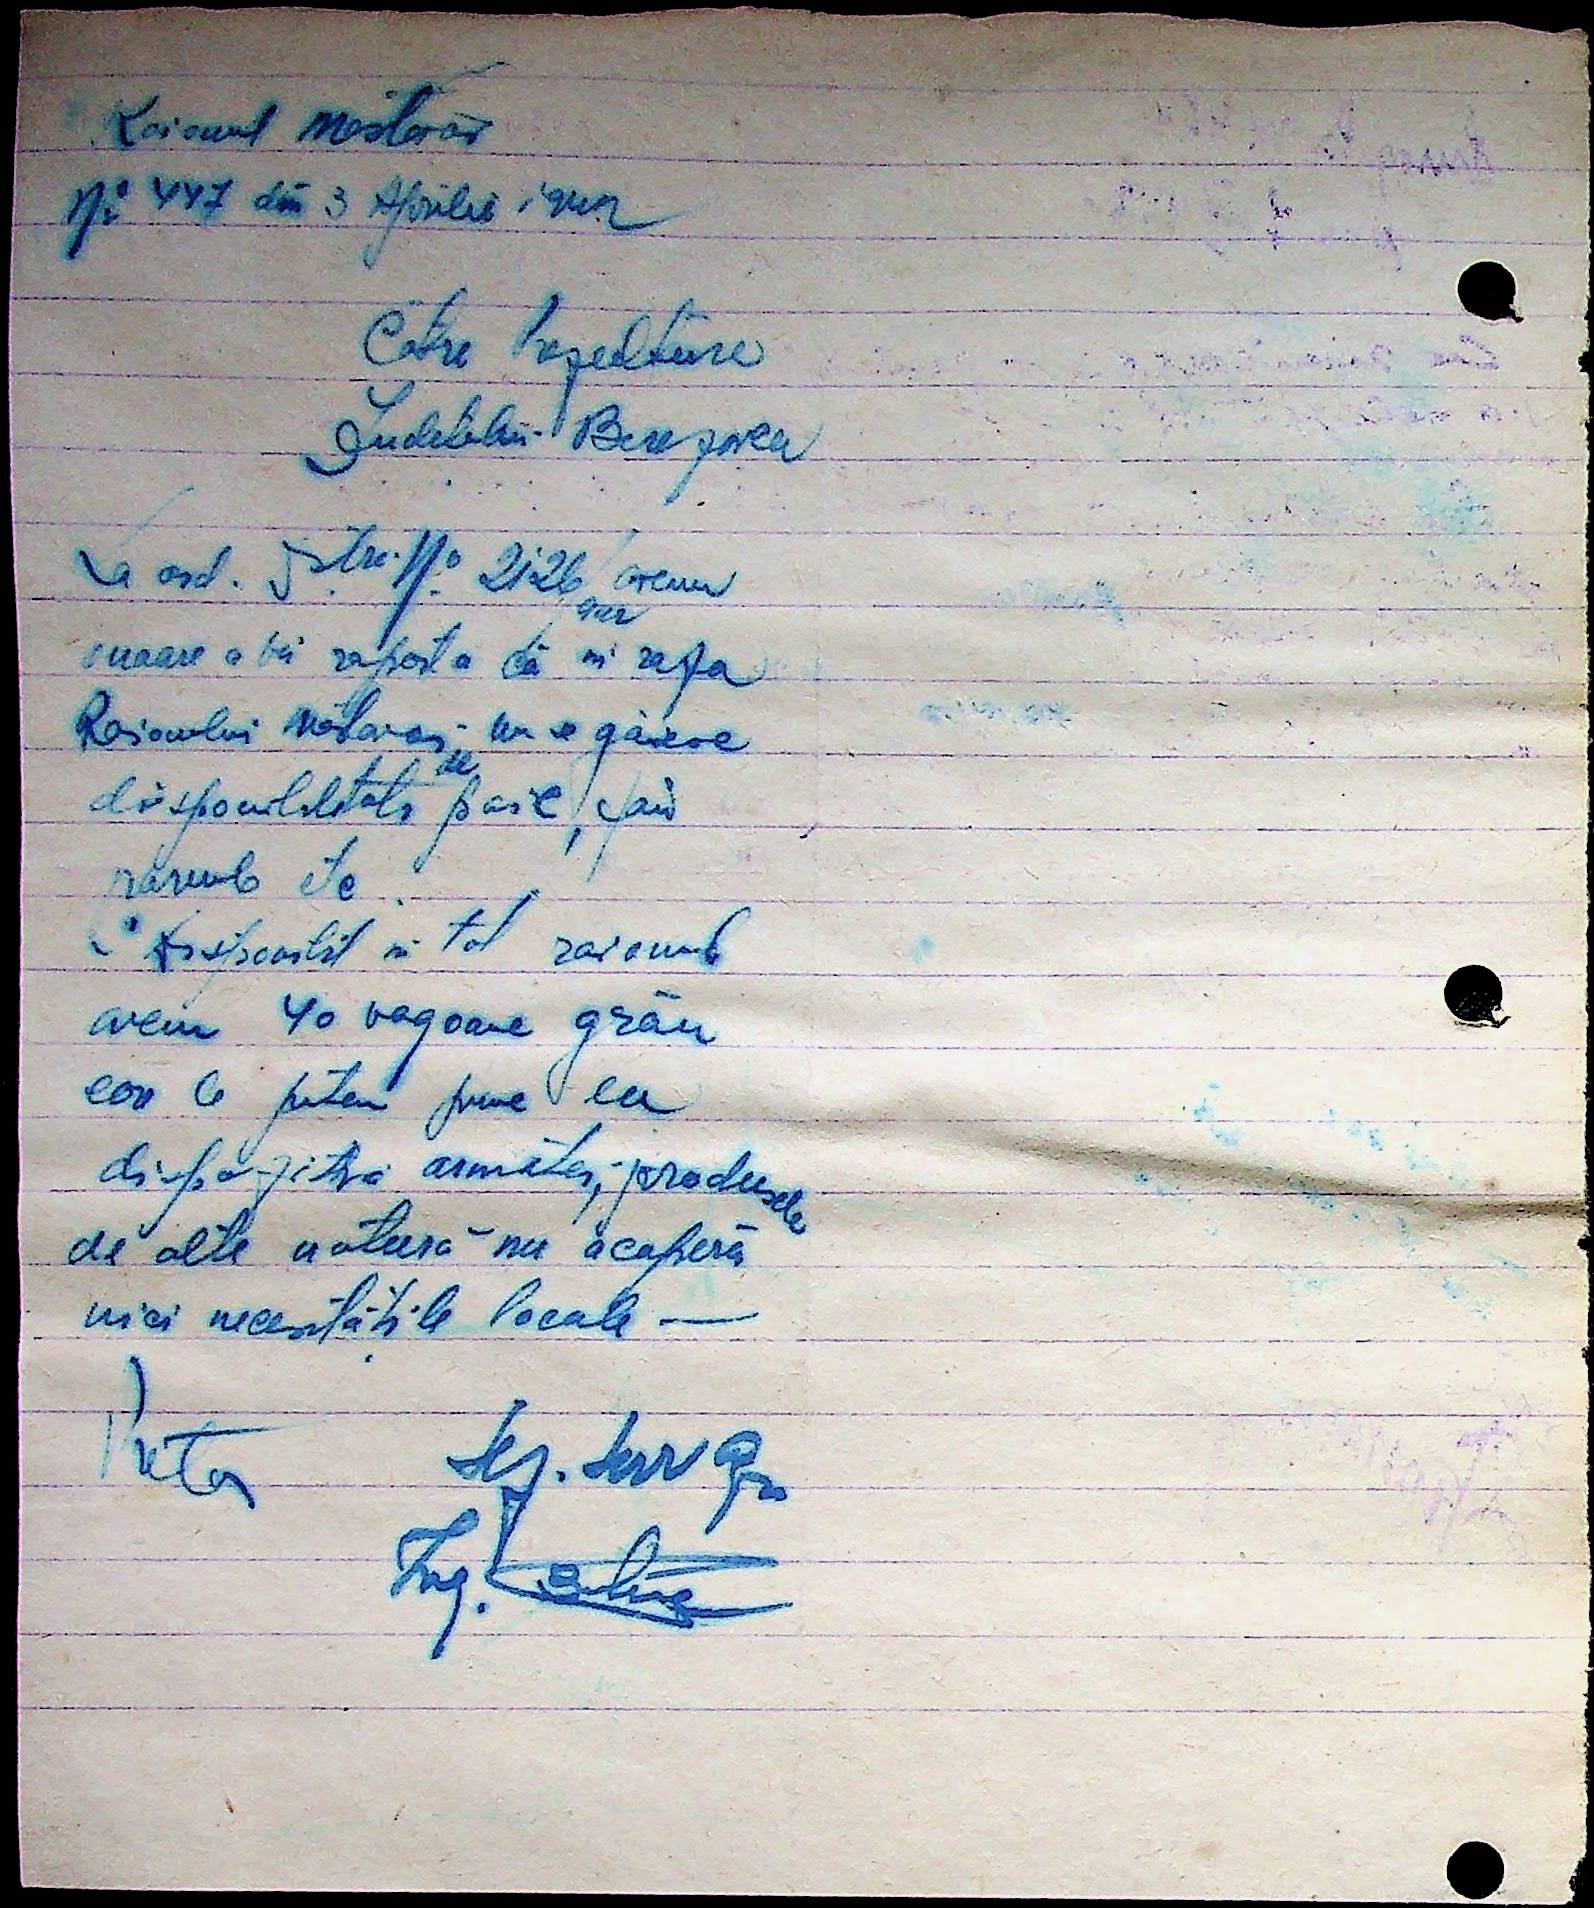 Raionul Mostovoi
No 447 din 3 Aprilie 1942
Către Prefectura
Județului Berezovca
La ord. Dstre. No 2126 avem
942
onoare a vă raporta că în raza
Raionului Mostovoi nu se găsesc
disponibilități de paie, fân
porumb etc.
Disponibil în tot raionul
avem 40 vagoane grâu
care le putem pune la
dispoziția armatei, produsele
de altă natură nu acoperă
nici necesitățile locale —
Pretor
Ing.